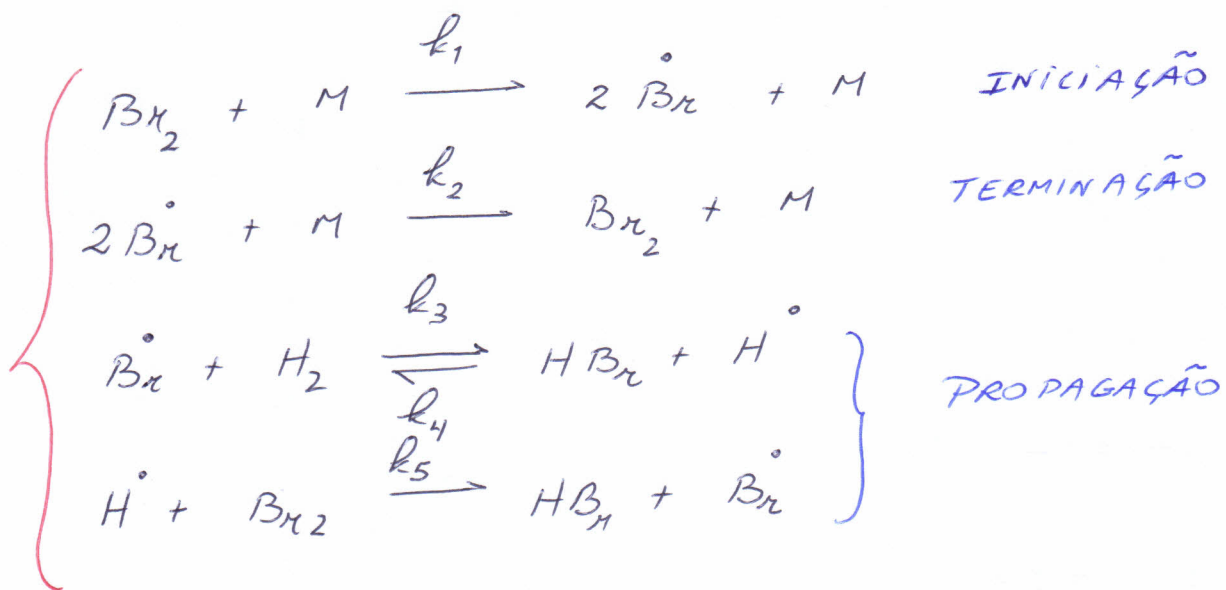 Br₂ + M —k₁→ 2 Br• + M INICIAÇÃO
2 Br• + M —k₂→ Br₂ + M TERMINAÇÃO
Br• + H₂ k₃ ⇌ k₄ HBr + H•
PROPAGAÇÃO
H• + Br2 —k₅→ HBr + Br•